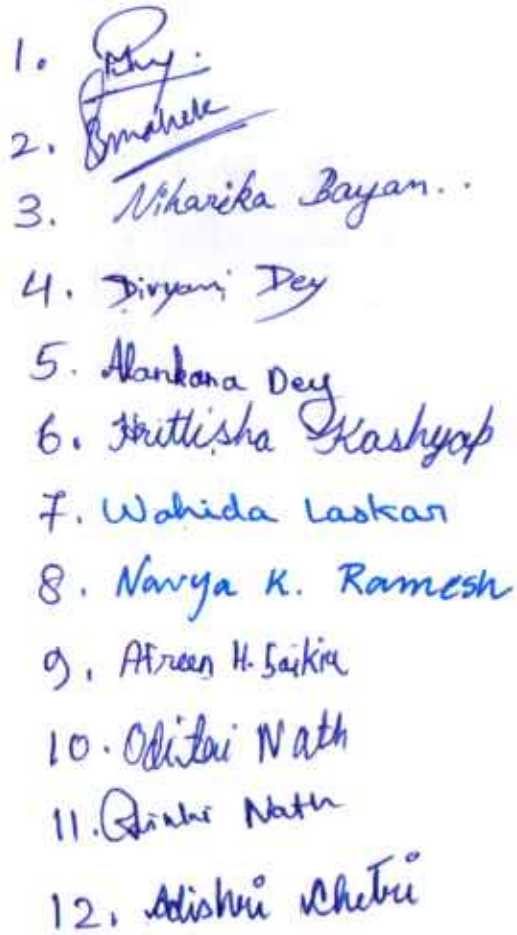 1.
2. Bmahele
3. Niharika Bayan..
4. Divyani Dey
5. Alankana Dey
6. Hrittisha Kashyap
7. Wahida Laskar
8. Navya K. Ramesh
9. Afreen H. Saikia
10. Nath
11. Nath
12. Adishri Chetri